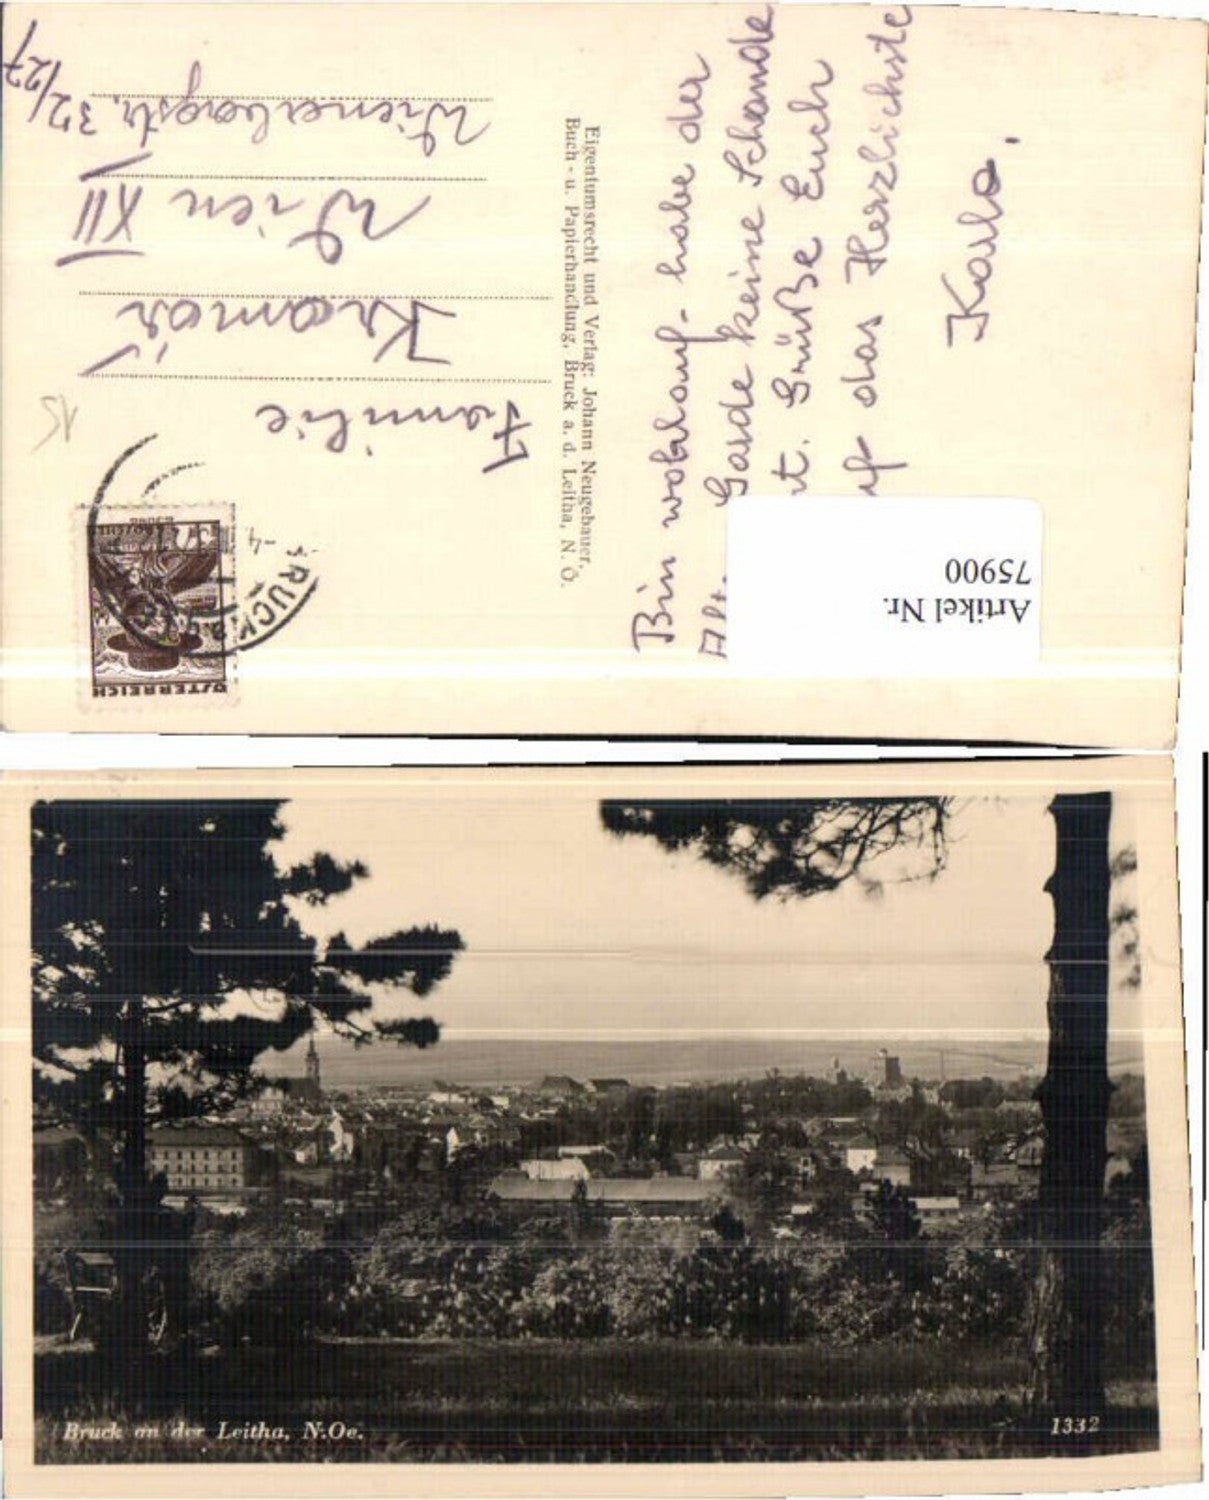 Familie
Kramar
Wien XII
Wienerbergstr. 32/27
15
ÖSTERREICH
BRUCK a
Eigentumsrecht und Verlag: Johann Neugebauer,
Buch- u. Papierhandlung, Bruck a. d. Leitha, N. Ö.
Bin wohlauf - habe der
Alt. Garde keine Schande
t. Grüße Euch
uf das Herzlichste
Karla.
Artikel Nr.
75900
Bruck an der Leitha, N.Oe.
1332